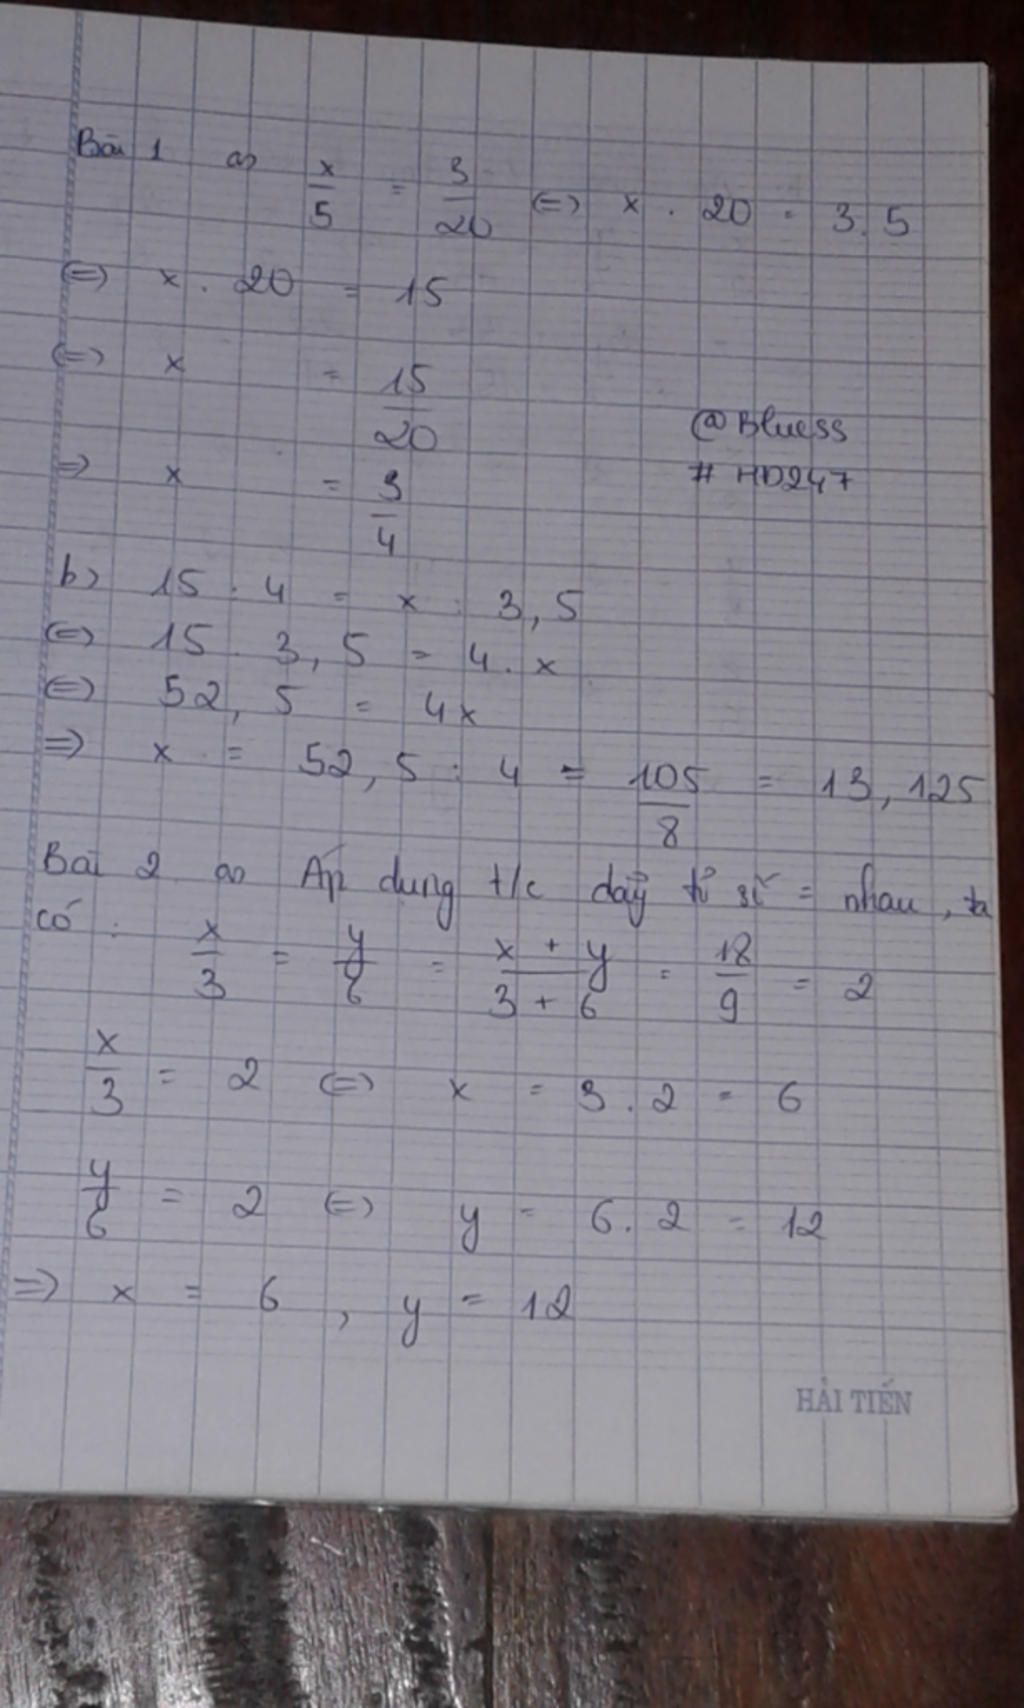 Bài 1 a) x/5 = 3/20 <=> x . 20 = 3.5
<=> x . 20 = 15
<=> x = 15/20
@Bluess
=> x = 3/4
# HD247
b) 15 : 4 = x : 3,5
<=> 15 . 3,5 = 4 . x
<=> 52,5 = 4x
=> x = 52,5 : 4 = 105/8 = 13,125
Bài 2 a) Áp dụng t/c dãy tỉ số = nhau, ta
có : x/3 = y/6 = x + y/3 + 6 = 18/9 = 2
x/3 = 2 <=> x = 3 . 2 = 6
y/6 = 2 <=> y = 6 . 2 = 12
=> x = 6 , y = 12
HẢI TIẾN